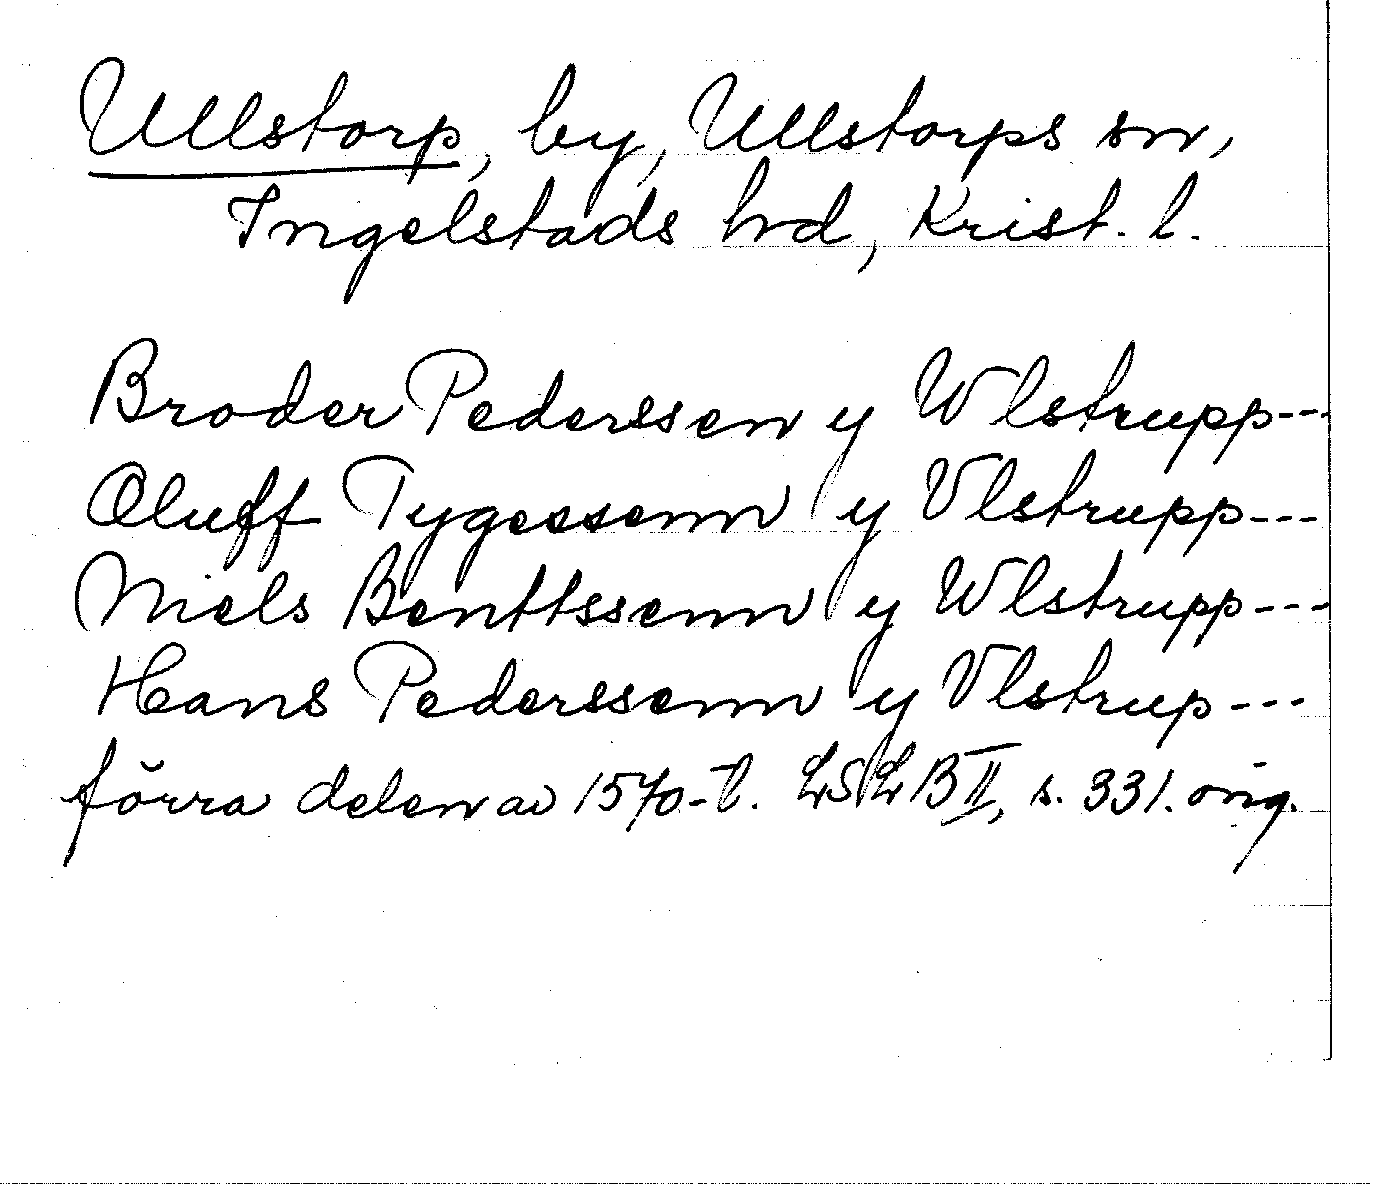 Ullstorp, by, Ullstorps sn,
Ingelstads hd, Krist. l.
Broder Pederssen y Wlstrupp---
Oluff Tygessenn y Vlstrupp---
Niels Benttssenn y Wlstrupp---
Hans Pederssenn y Vlstrup---
förra delen av 1570-t. LSL B II, s. 331. orig.